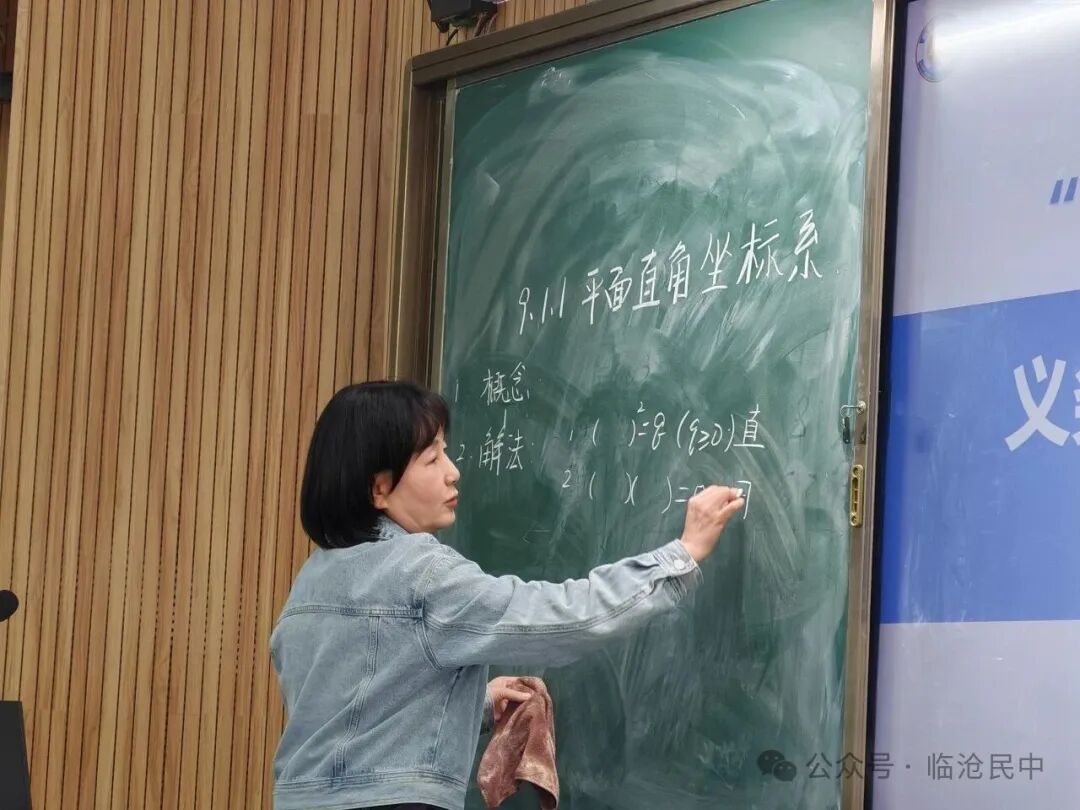 9.1.1 平面直角坐标系
1 概念
2. 解法: 1 ( )²=q (q≥0) 直
2 ( )( )=
"
义
公众号 · 临沧民中